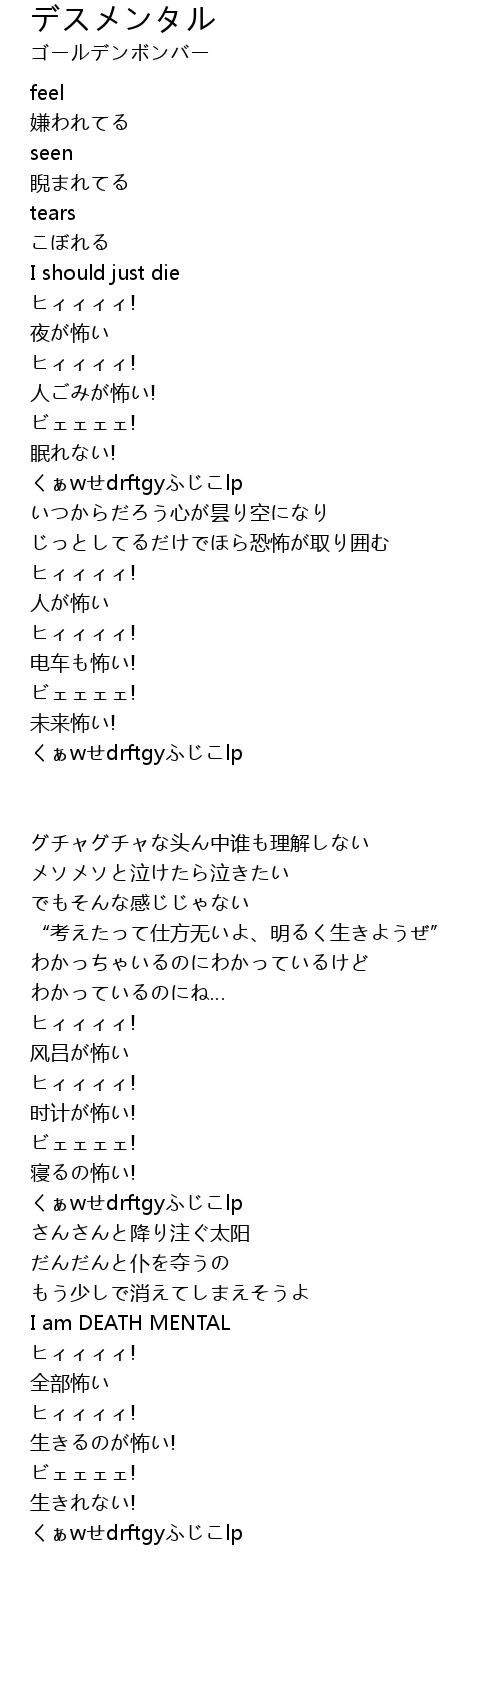 デスメンタル
ゴールデンボンバー
feel
嫌われてる
seen
睨まれてる
tears
こぼれる
I should just die
ヒィィィィ!
夜が怖い
ヒィィィィ!
人ごみが怖い!
ビェェェェ!
眠れない!
くぁwせdrftgyふじこlp
いつからだろう心が昙り空になり
じっとしてるだけでほら恐怖が取り囲む
ヒィィィィ!
人が怖い
ヒィィィィ!
电车も怖い!
ビェェェェ!
未来怖い!
くぁwせdrftgyふじこlp
グチャグチャな头ん中谁も理解しない
メソメソと泣けたら泣きたい
でもそんな感じじゃない
“考えたって仕方无いよ、明るく生きようぜ”
わかっちゃいるのにわかっているけど
わかっているのにね...
ヒィィィィ!
风吕が怖い
ヒィィィィ!
时计が怖い!
ビェェェェ!
寝るの怖い!
くぁwせdrftgyふじこlp
さんさんと降り注ぐ太阳
だんだんと仆を夺うの
もう少しで消えてしまえそうよ
I am DEATH MENTAL
ヒィィィィ!
全部怖い
ヒィィィィ!
生きるのが怖い!
ビェェェェ!
生きれない!
くぁwせdrftgyふじこlp